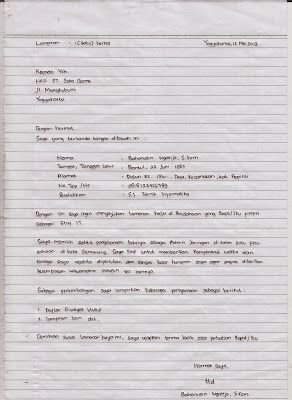 Lampiran : 1 (Satu) berkas Yogyakarta, 12 Mei 2013
Kepada Yth.
HRD PT. Soto Game
Jl. Mangkubumi
Yogyakarta
Dengan hormat,
Saya yang bertanda tangan dibawah ini :
Nama : Baharudin Ngatijo, S.Kom
Tempat, Tanggal Lahir : Bantul, 25 Juni 1983
Alamat : Dusun RT. /RW. , Desa, Kecamatan, Kab, Provinsi
No Tlp /HP : 
Pendidikan : S1 Teknik Informatika
Dengan ini saya ingin mengajukan lamaran kerja di Perusahaan yang Bapak/Ibu pimpin
sebagai Staf IT.
Saya memiliki sedikit pengalaman bekerja sebagai Admin Jaringan di salah satu peru-
sahaan di kota Semarang. Saya siap untuk memberikan kompetensi waktu dan
tenaga saya apabila diperlukan dan sangat besar harapan saya agar dapat diberikan
kesempatan wawancara maupun tes lainnya.
Sebagai pertimbangan saya lampirkan beberapa persyaratan sebagai berikut :
1. Daftar Riwayat Hidup
2. Lampiran lain dst.
Demikian surat lamaran kerja ini, saya ucapkan terima kasih atas perhatian Bapak/Ibu
Hormat Saya,
ttd
Baharudin Ngatijo, S.Kom